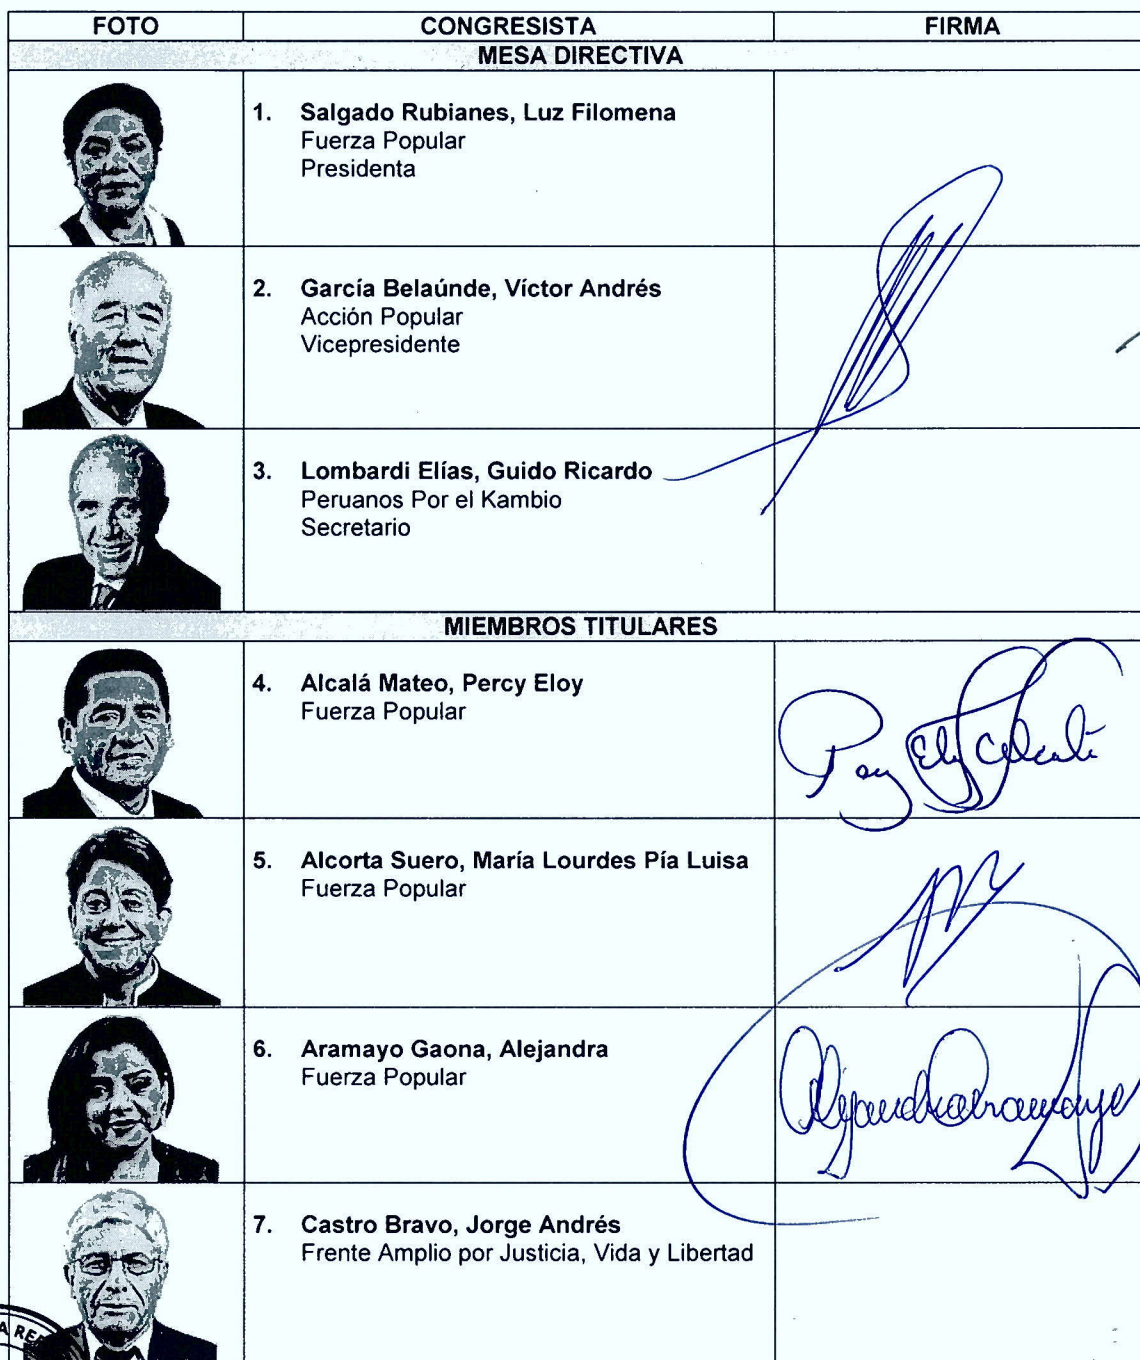 FOTO CONGRESISTA FIRMA
MESA DIRECTIVA
1. Salgado Rubianes, Luz Filomena
Fuerza Popular
Presidenta
2. García Belaúnde, Víctor Andrés
Acción Popular
Vicepresidente
3. Lombardi Elías, Guido Ricardo
Peruanos Por el Kambio
Secretario
MIEMBROS TITULARES
4. Alcalá Mateo, Percy Eloy
Fuerza Popular
5. Alcorta Suero, María Lourdes Pía Luisa
Fuerza Popular
6. Aramayo Gaona, Alejandra
Fuerza Popular
Alejandra Aramayo
7. Castro Bravo, Jorge Andrés
Frente Amplio por Justicia, Vida y Libertad